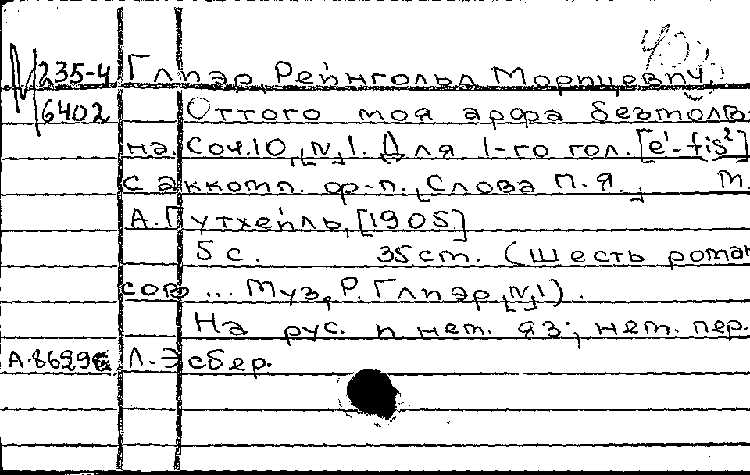 М235-4 Глиэр, Рейнгольд Морицевич.
6402 Оттого моя арфа безмолв-
на. Соч.10, [№]1. Для 1-го гол. [e¹-fis²]
с аккомп. ф-п. [Слова П.Я.] М.
А.Гутхейль, [1905]
5 с. 35 cm. (Шесть роман
сов ... Муз. Р. Глиэр, [№]1).
На рус. и нем. яз; нем. пер.
А.8699 Л. Эсбер.